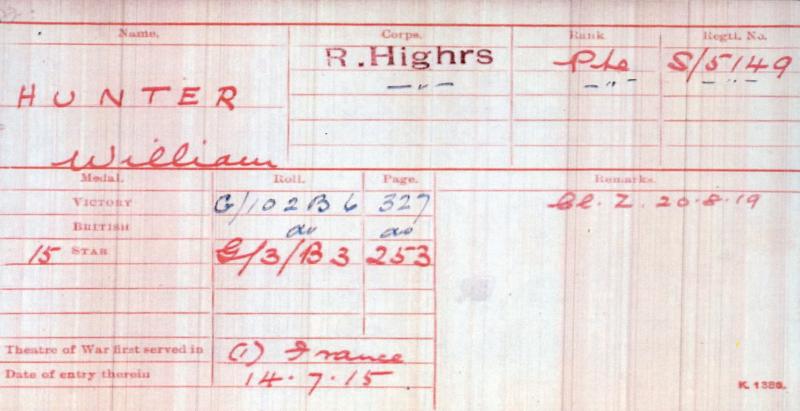 Name. Corps. Rank Regtl. No.
HUNTER R. Highrs Pte S/5149
" " "
William
Medal. Roll. Page. Remarks.
VICTORY G/102B6 327 Cl. Z. 20.8.19
BRITISH do do
15 STAR G/3/B3 253
Theatre of War first served in (1) France
Date of entry therein 14.7.15
K. 1380.